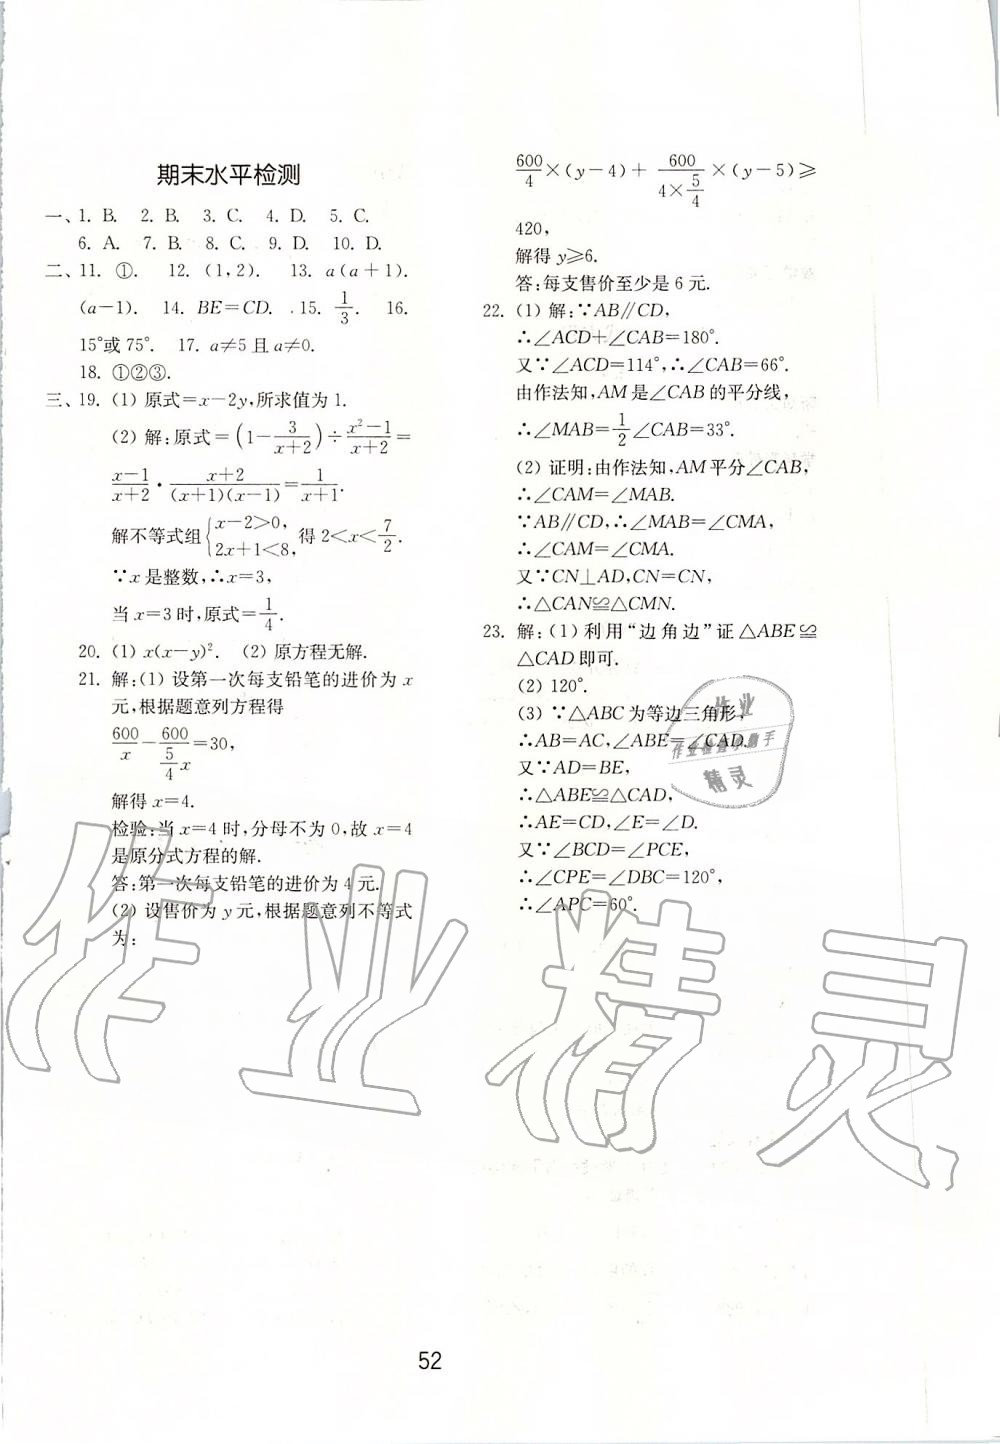 期末水平检测
一、1. B. 2. B. 3. C. 4. D. 5. C.
6. A. 7. B. 8. C. 9. D. 10. D.
二、11. ①. 12. (1,2). 13. a(a+1).
(a-1). 14. BE=CD. 15. 1/3. 16.
15°或75°. 17. a≠5且a≠0.
18. ①②③.
三、19. (1) 原式=x-2y,所求值为1.
(2) 解:原式=(1-3/(x+2))÷(x²-1)/(x+2)=
(x-1)/(x+2)·(x+2)/((x+1)(x-1))=1/(x+1).
解不等式组{x-2>0, 2x+1<8, 得2<x<7/2.
∵x是整数,∴x=3,
当x=3时,原式=1/4.
20. (1) x(x-y)². (2) 原方程无解.
21. 解:(1) 设第一次每支铅笔的进价为x
元,根据题意列方程得
600/x-600/(5/4 x)=30,
解得x=4.
检验:当x=4时,分母不为0,故x=4
是原分式方程的解.
答:第一次每支铅笔的进价为4元.
(2) 设售价为y元,根据题意列不等式
为:
600/4×(y-4)+600/(4×5/4)×(y-5)≥
420,
解得y≥6.
答:每支售价至少是6元.
22. (1) 解:∵AB∥CD,
∴∠ACD+∠CAB=180°.
又∵∠ACD=114°,∴∠CAB=66°.
由作法知,AM是∠CAB的平分线,
∴∠MAB=1/2∠CAB=33°.
(2) 证明:由作法知,AM平分∠CAB,
∴∠CAM=∠MAB.
∵AB∥CD,∴∠MAB=∠CMA,
∴∠CAM=∠CMA.
又∵CN⊥AD,CN=CN,
∴△CAN≌△CMN.
23. 解:(1)利用“边角边”证△ABE≌
△CAD即可.
(2) 120°.
(3) ∵△ABC为等边三角形,
∴AB=AC,∠ABE=∠CAD.
又∵AD=BE,
∴△ABE≌△CAD,
∴AE=CD,∠E=∠D.
又∵∠BCD=∠PCE,
∴∠CPE=∠DBC=120°,
∴∠APC=60°.
作业
精灵
作业精灵
52